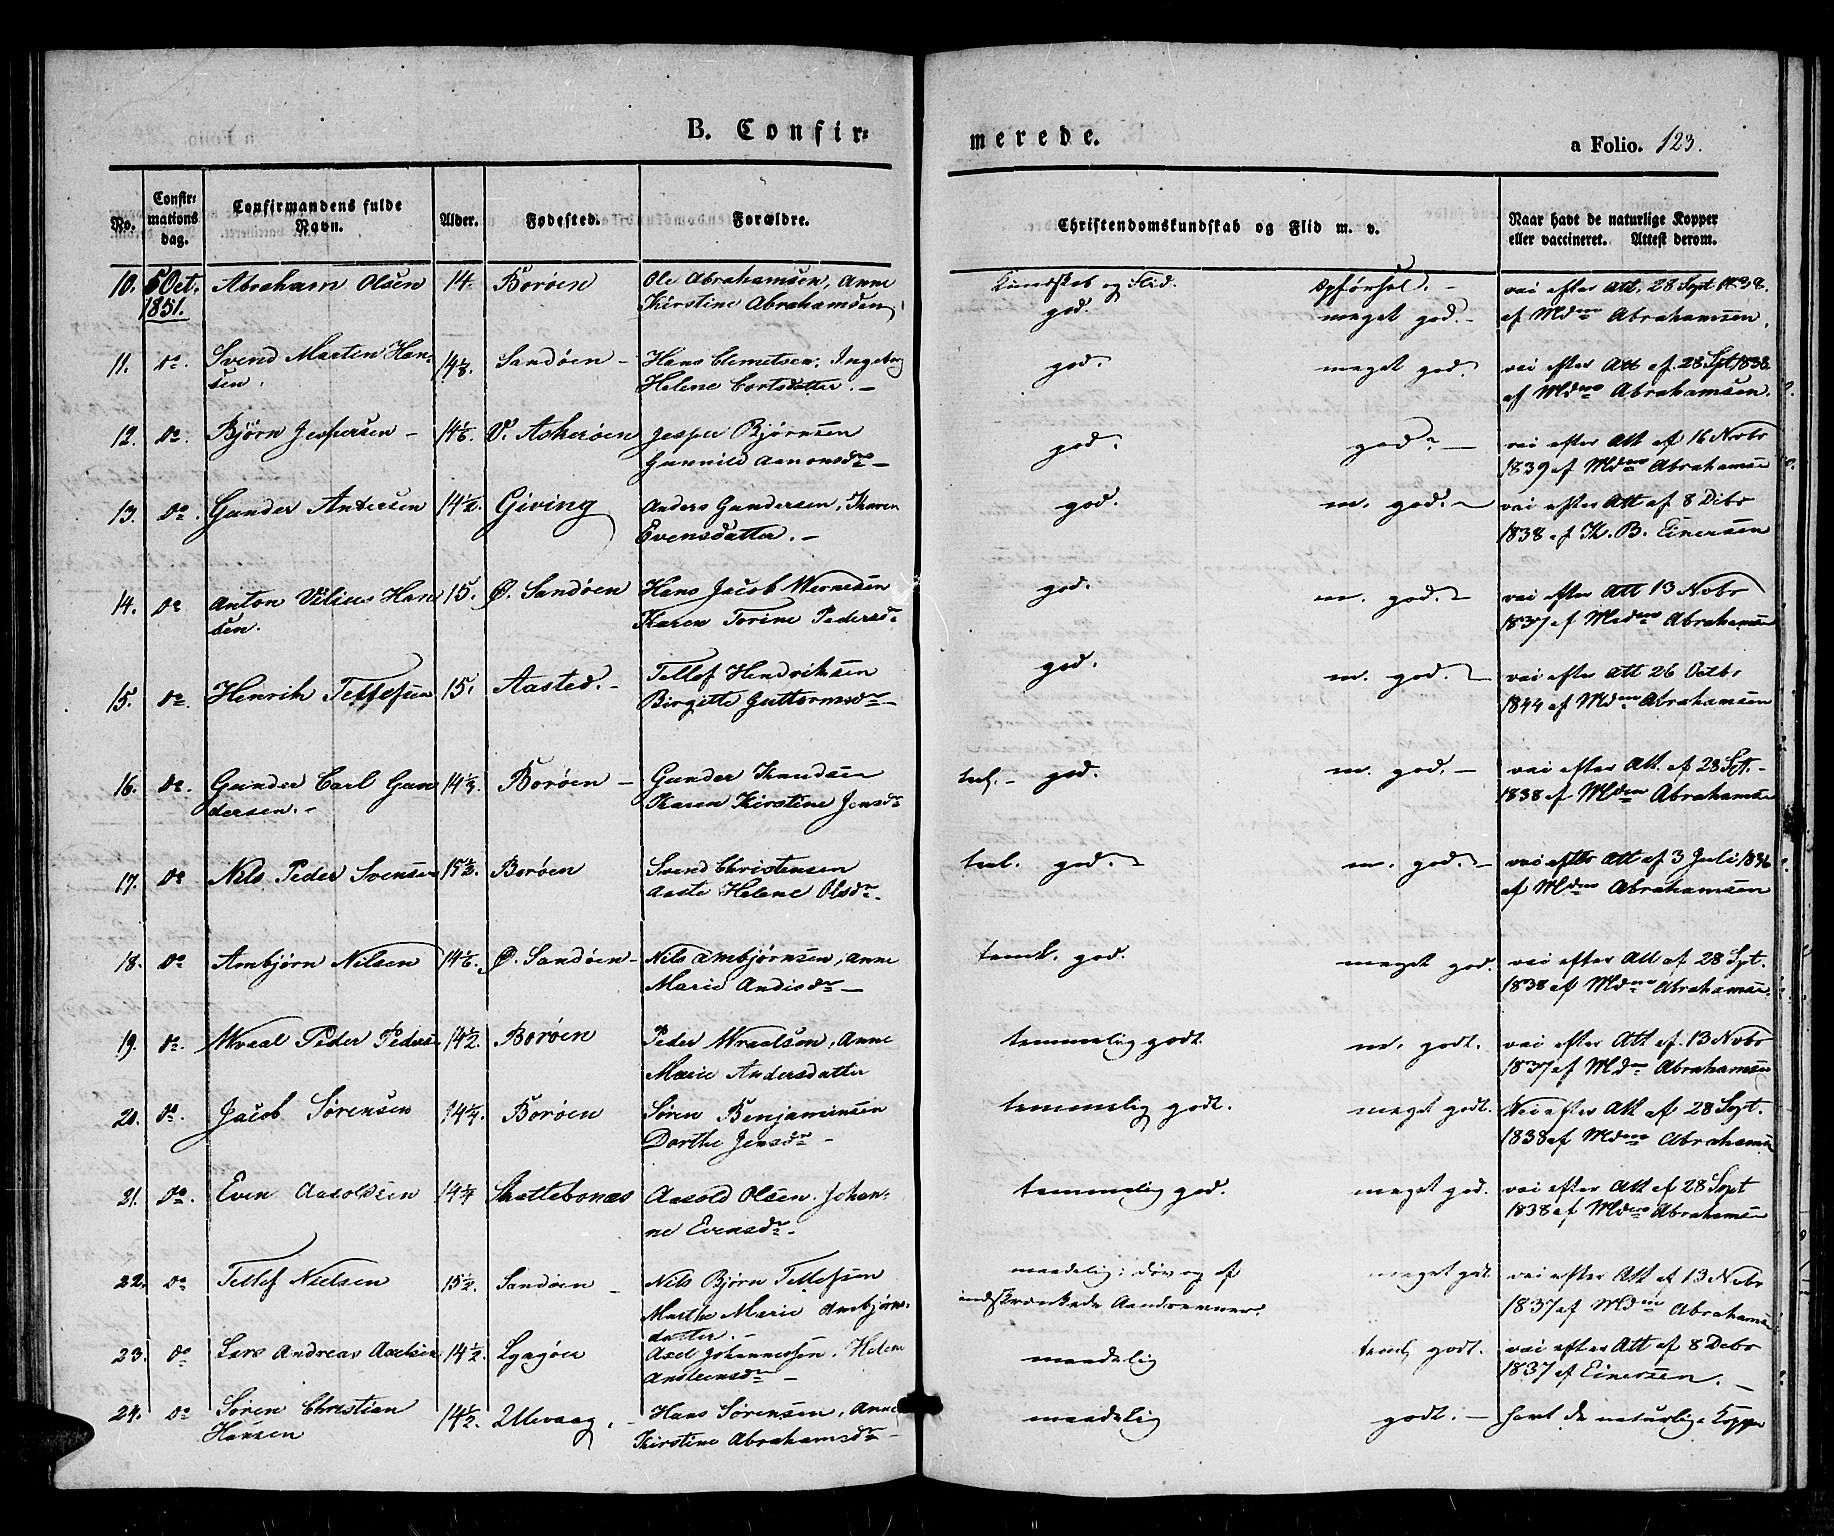 B. Confir-
merede.
a Folio. 123.
No.
Confir-
mations
dag.
Confirmandens fulde
Navn.
Alder.
Fødested.
Forældre.
Christendomskundskab og Flid m. v.
Naar havt de naturlige Kopper
eller vaccineret. Attest derom.
10. 5 Oct. Abraham Olsen 14 Borøen Ole Abrahamsen, Anne Kundskab og Flid. Opførsel. vac efter Att. 28 Sept 1838.
1851. Kirstine Abrahamsen god. meget god. af Mdme Abrahamsen.
11. do. Svend Marten Han- Sandøen Hans Clemetsen, Ingeborg god. meget god. vac efter Att af 28 Spt 1838
sen. Helene Cortsdatter. af Mdme Abrahamsen.
12. do. Bjørn Jespersen V. Askerøen Jesper Bjørnsen god. god. vac efter Att af 16 Novbr
Gunnild Aanonsdr 1839 af Mdme Abrahamsen
13. do. Gunder Andersen 14½. Giving Anders Gundersen, Karen god. m. god. vac efter Att af 8 Decbr
Evensdatter. 1838 af Th. B. Einersen
14. do Anton Vilius Han 15. Ø. Sandøen Hans Jacob Wernesen god. m. god. vac efter Att 13 Novbr
sen. Karen Torine Pedersdr 1837 af Madme Abrahamsen
15. do. Henrik Tellefsen 15. Aasted. Tellef Hendriksen god. m. god. vac efter Att 26 Octbr
Birgitte Guttormsdr 1844 af Mdme Abrahamsen
16. do. Gunder Carl Gun Borøen Gunder Knudsen tml. god. m. god. vac efter Att. af 28 Spt.
dersen. Karen Kirstine Jensdr 1838 af Mdme Abrahamsen
17. do Nils Peder Svensen 15½. Borøen Svend Christensen teml. god. m. god. vac efter Att af 3 Juli 1836
Aaste Helene Olsdr. af Mdme Abrahamsen
18. do Ambjørn Nilsen Ø. Sandøen Nils Ambjørnsen, Anne teml. god. meget god. vac efter Att af 28 Spt.
Marie 1838 af Mdme Abrahamsen.
19. do. Wraal Peder Peders 14½. Borøen Peder Wraalsen, Anne temmelig godt. m. godt. vac efter Att af. 13 Novbr
Marie Andersdatter 1837 af Mdme Abrahamsen
20. do. Jacob Sørensen 14¼. Borøen Søren Benjaminsen temmelig godt. meget godt. Vac efter Att af 28 Sept.
Dorthe Jensdr 1838 af Mdme Abrahamsen
21. do. Even Aasoldsen 14¼ Skottebonæs Aasold Olsen. Johan- temmelig god. meget god. vac efter Att af 28 Sept
ne Evensdr. 1838 af Mdme Abrahamsen
22. do Tellef Nielsen 15½. Sandøen Nils Bjørn Tellefsen maadelig; døv og af meget godt. vac efter Att af 13 Novbr
Marthe Marie Ambjørns- indskrænkede Aandsevner. 1837 af Mdme Abrahamsen
datter.
23. do Lars Andreas Axelsen 14½. Lyngøer Axel Johannessen. Helene maadelig teml. godt. vac efter Att af 8 Decbr
Ansteensdr 1837 af Einersen.
24. do Søren Christian 14½. Ulevaag. Hans Sørensen, Anne maadelig godt. havt de naturlige Kopper
Hansen Kirstine Abrahamsdr